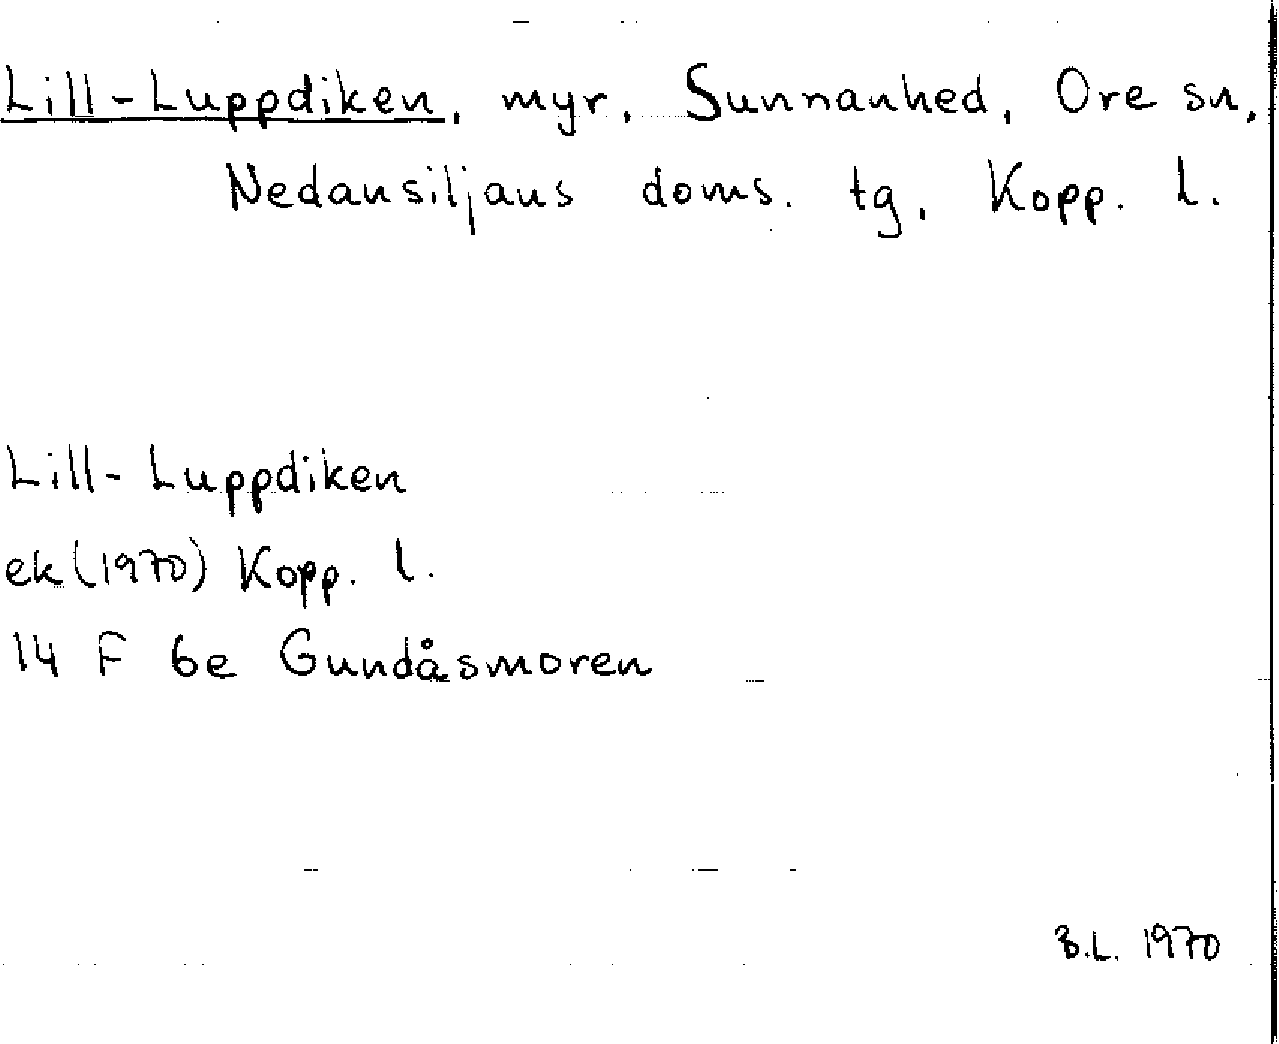 Lill-Luppdiken, myr, Sunnanhed, Ore sn,
Nedansiljans doms. tg, Kopp. l.
Lill-Luppdiken
ek (1970) Kopp. l.
14 F 6e Gundåsmoren
B.L. 1970